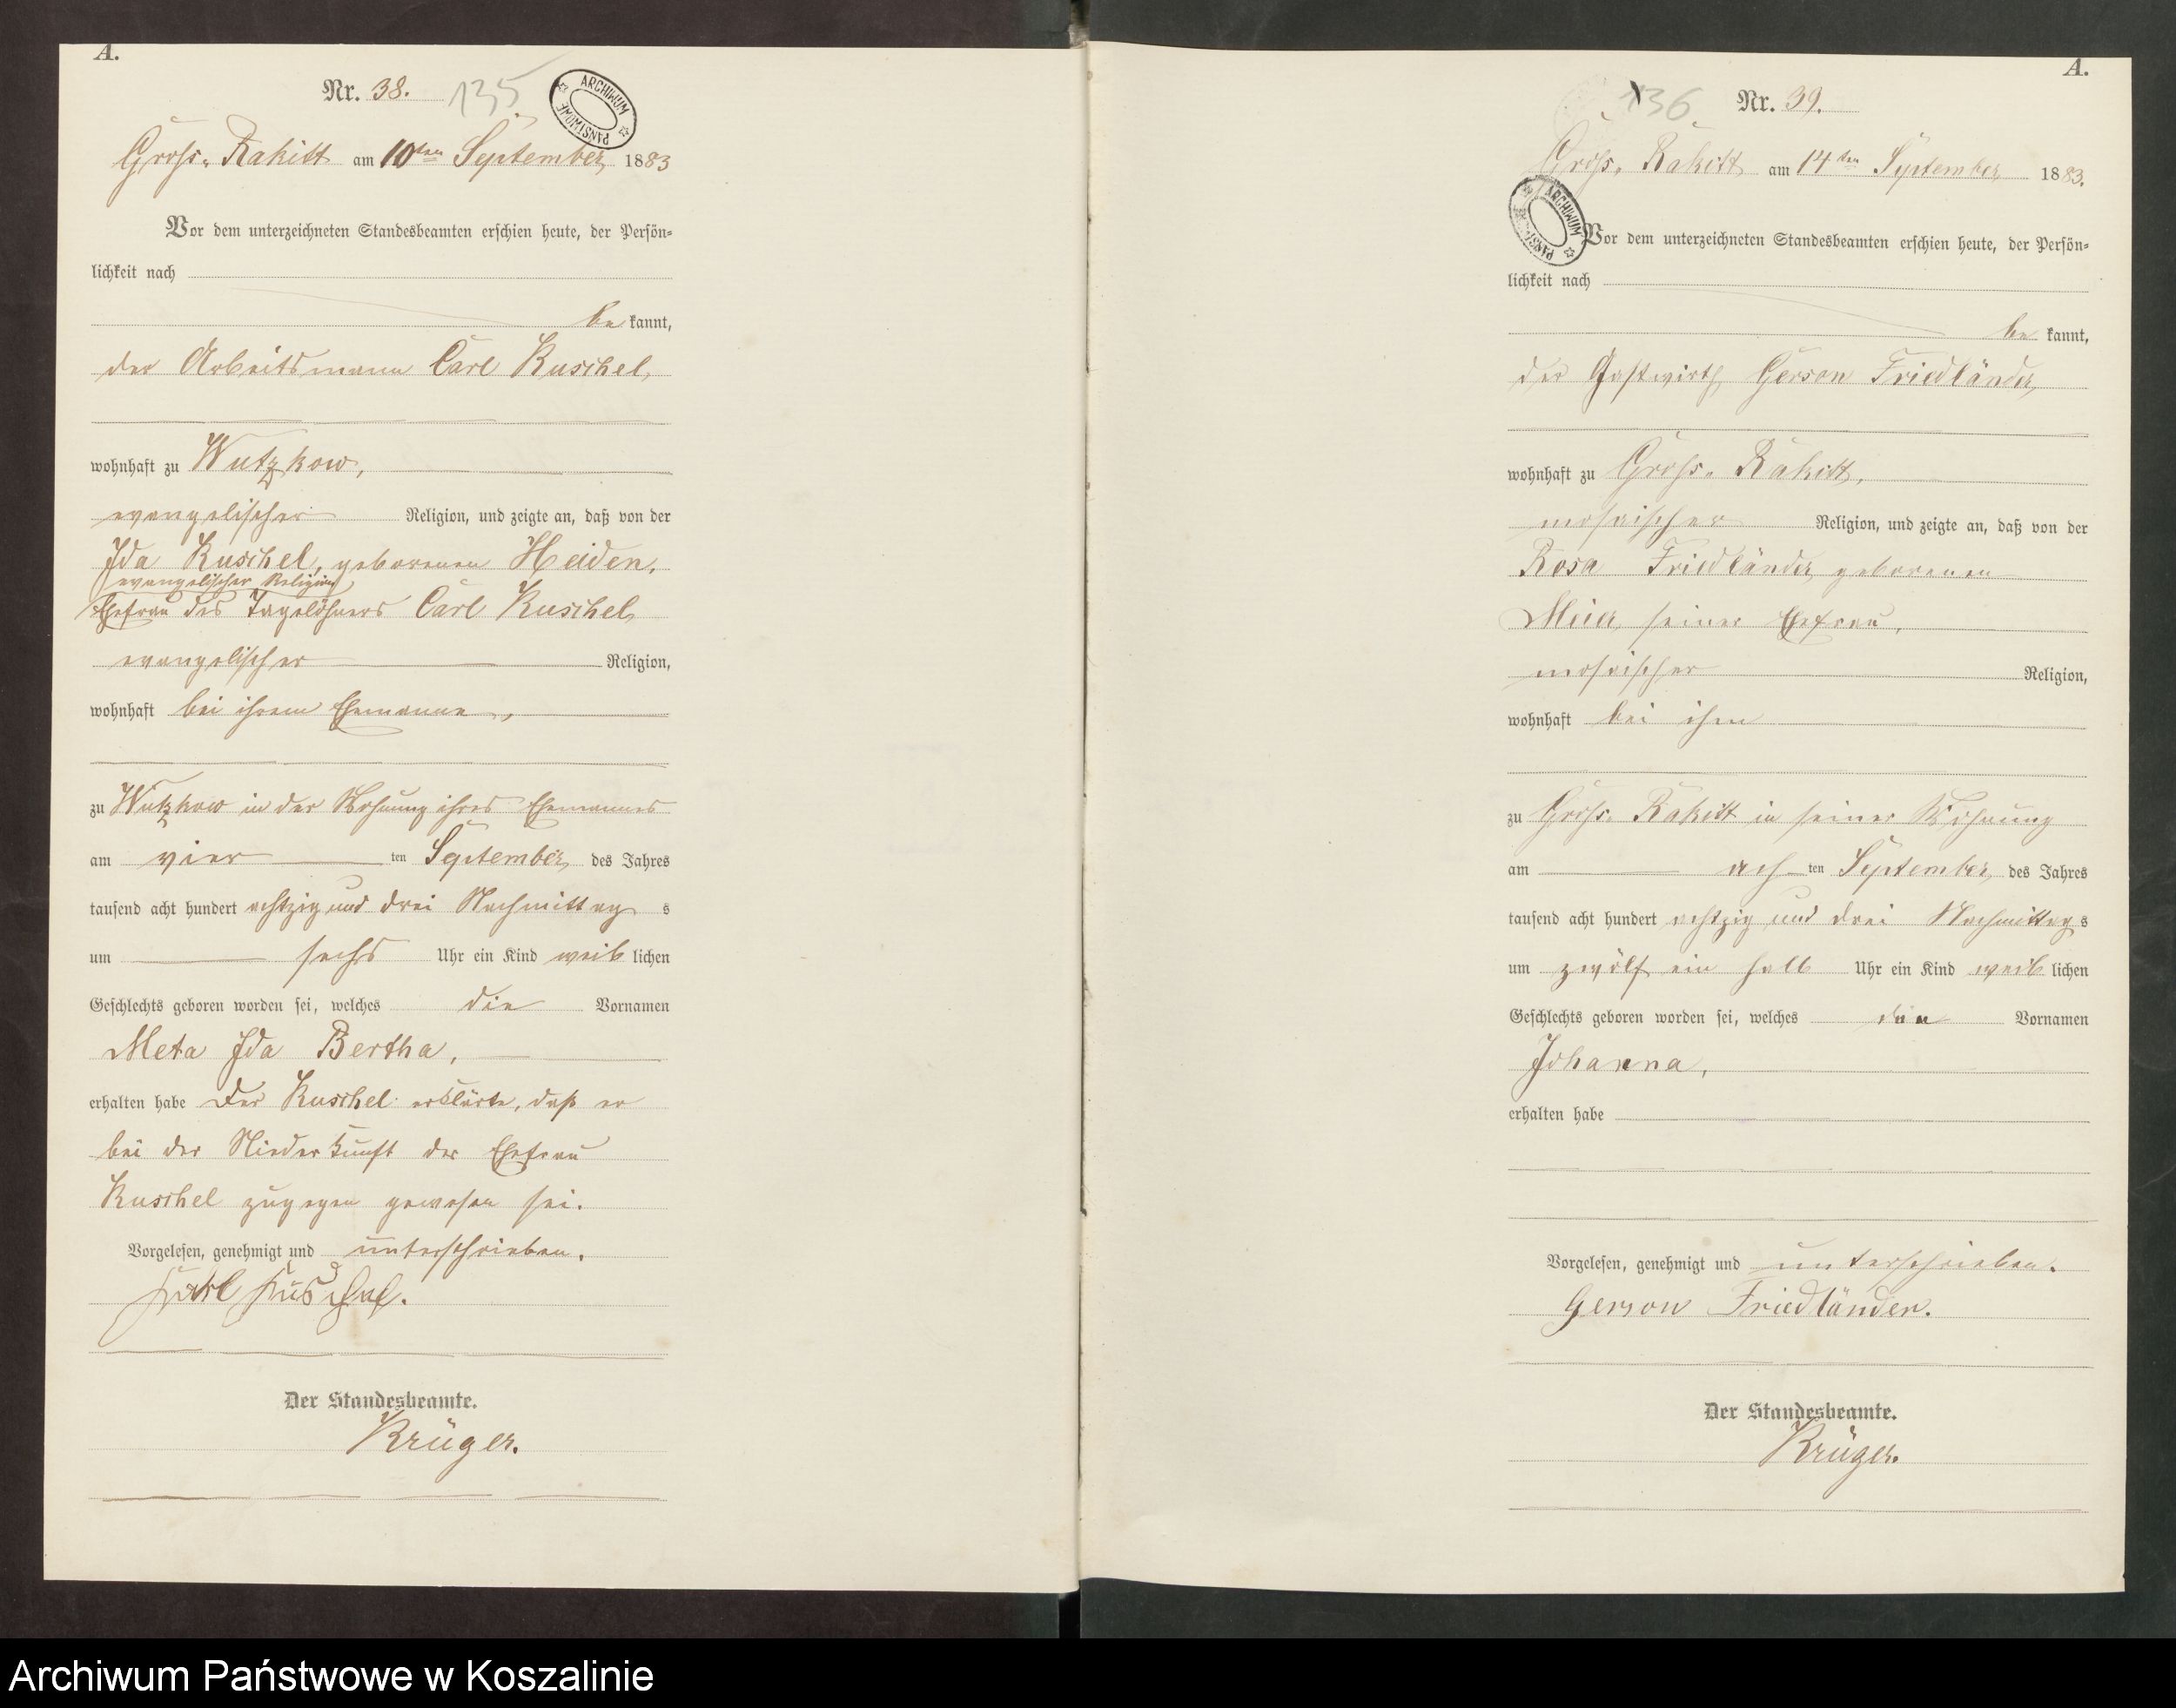 A.
Nr. 38.
135
ARCHIWUM PAŃSTWOWE
Gross-Rakitt am 10ten September 1883
Vor dem unterzeichneten Standesbeamten erschien heute, der Persön-
lichkeit nach
be kannt,
der Arbeitsmann Carl Kuschel,
wohnhaft zu Wutzkow,
evangelischer Religion, und zeigte an, daß von der
Ida Kuschel, geborenen Heiden,
evangelischer Religion
Ehefrau des Tagelöhners Carl Kuschel
evangelischer Religion,
wohnhaft bei ihrem Ehemanne,
zu Wutzkow in der Wohnung ihres Ehemannes
am vier ten September des Jahres
tausend acht hundert achtzig und drei Nachmittag s
um sechs Uhr ein Kind weib lichen
Geschlechts geboren worden sei, welches die Vornamen
Meta Ida Bertha,
erhalten habe Der Kuschel erklärte, daß er
bei der Niederkunft der Ehefrau
Kuschel zugegen gewesen sei.
Vorgelesen, genehmigt und unterschrieben.
Karl Kuschel.
Der Standesbeamte.
Krüger.
A.
136. Nr. 39.
Gross-Rakitt am 14ten September 1883.
ARCHIWUM PAŃSTWOWE
Vor dem unterzeichneten Standesbeamten erschien heute, der Persön-
lichkeit nach
be kannt,
der Gastwirth Gerson Friedländer,
wohnhaft zu Gross-Rakitt,
mosaischer Religion, und zeigte an, daß von der
Rosa Friedländer geborenen
Meier, seiner Ehefrau,
mosaischer Religion,
wohnhaft bei ihm
zu Gross-Rakitt in seiner Wohnung
am ach ten September des Jahres
tausend acht hundert achtzig und drei Nachmittag s
um zwölf ein halb Uhr ein Kind weib lichen
Geschlechts geboren worden sei, welches den Vornamen
Johanna,
erhalten habe
Vorgelesen, genehmigt und unterschrieben.
Gerson Friedländer.
Der Standesbeamte.
Krüger.
Archiwum Państwowe w Koszalinie